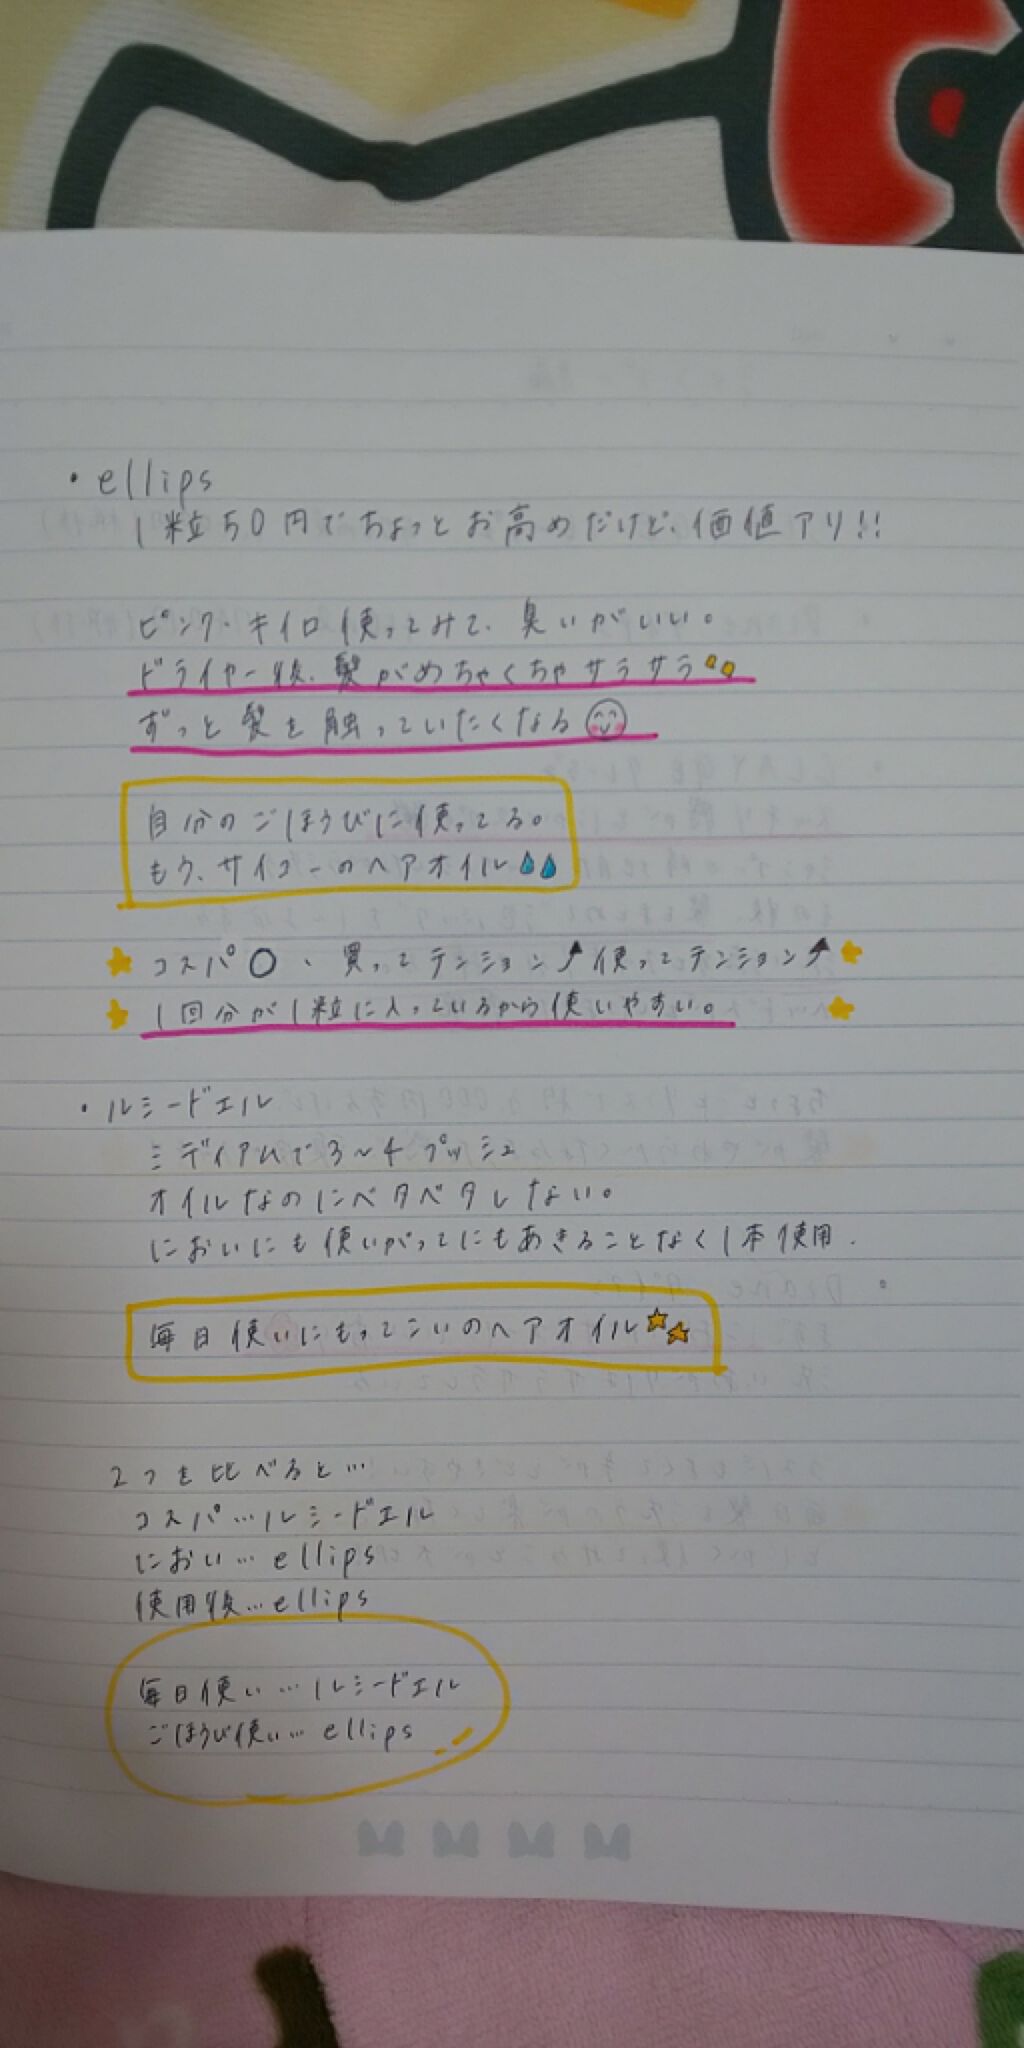 ・ellips
1粒50円でちょっとお高めだけど、価値アリ!!
ピンク・キイロ使ってみて、臭いがいい。
ドライヤー後、髪がめちゃくちゃサラサラ
ずっと髪を触っていたくなる
自分のごほうびに使ってる。
もう、サイコーのヘアオイル
コスパ〇、買ってテンション↑使ってテンション↑
1回分が1粒に入っているから使いやすい。
・ルシードエル
ミディアムで3~4プッシュ
オイルなのにベタベタしない。
においにも使いがってにもあきることなく1本使用.
毎日使いにもってこいのヘアオイル
2つを比べると…
コスパ…ルシードエル
におい…ellips
使用後…ellips
毎日使い…ルシードエル
ごほうび使い…ellips